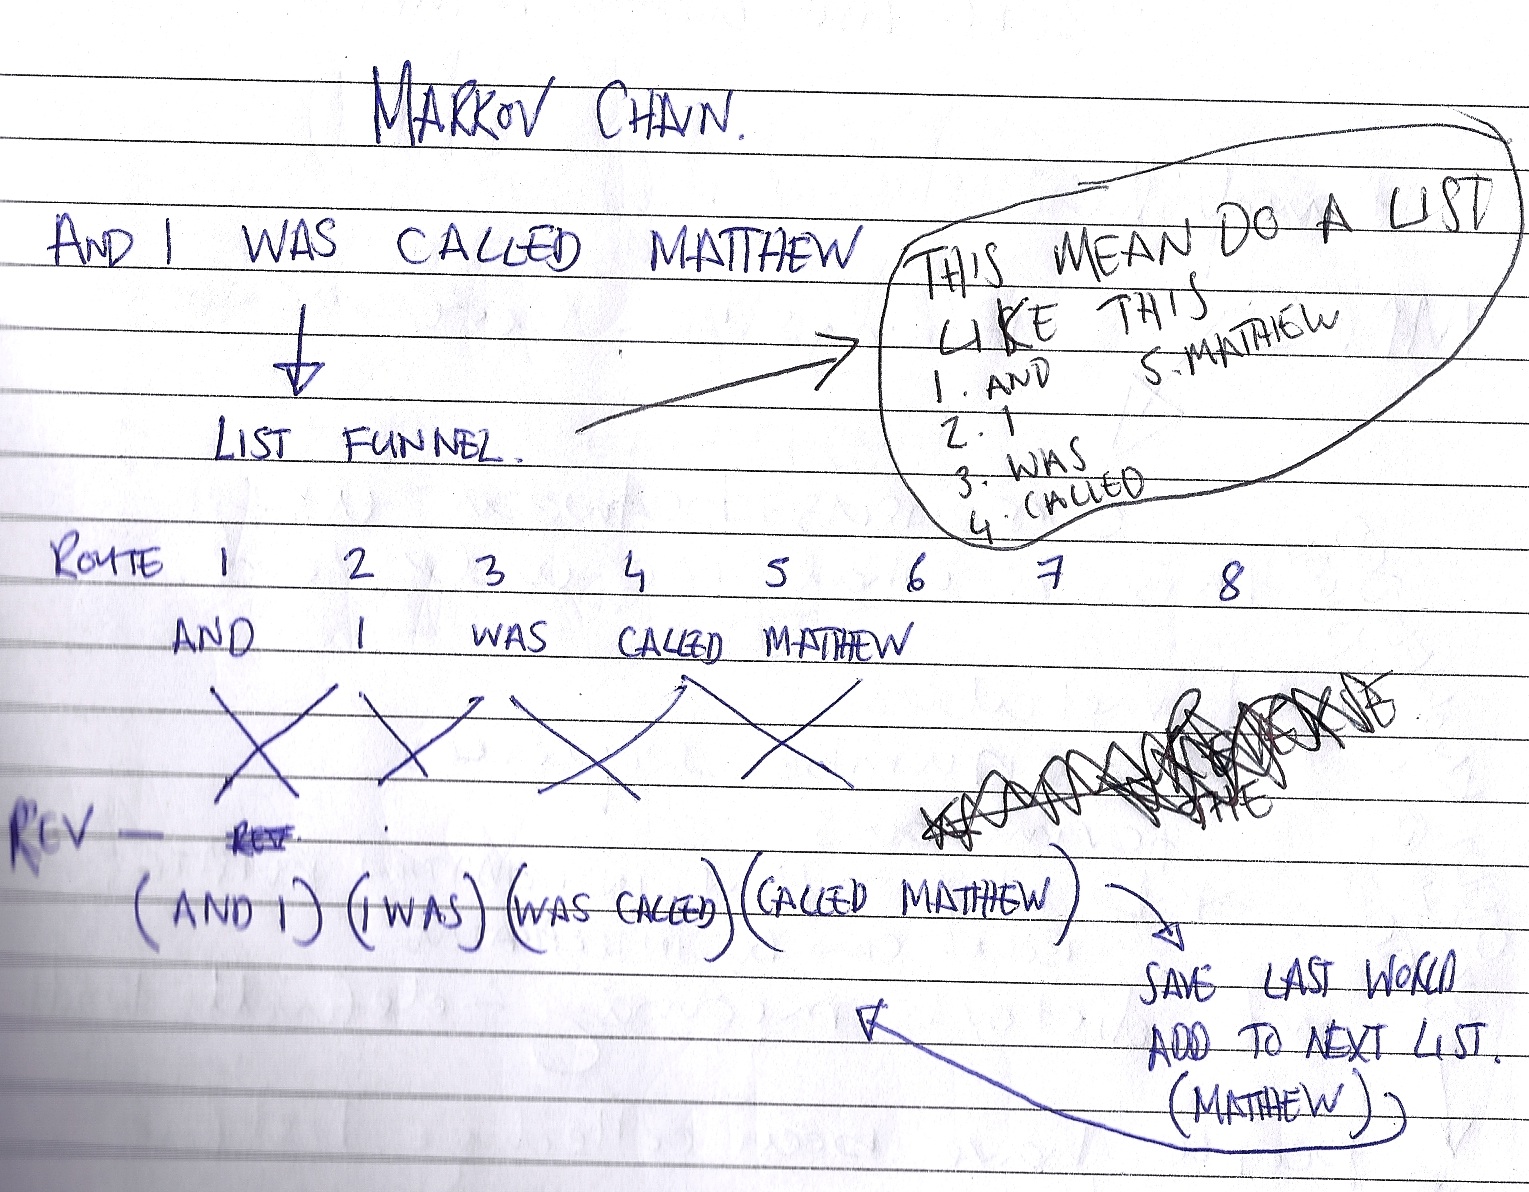 MARKOV CHAIN.
AND I WAS CALLED MATTHEW
THIS MEAN DO A LIST
LIKE THIS
1. AND 5. MATHEW
2. I
3. WAS
4. CALLED
LIST FUNNEL.
ROUTE 1 2 3 4 5 6 7 8
AND I WAS CALLED MATHEW
REV — REV
(AND I) (I WAS) (WAS CALLED) (CALLED MATHEW)
SAVE LAST WORLD
ADD TO NEXT LIST.
(MATTHEW)